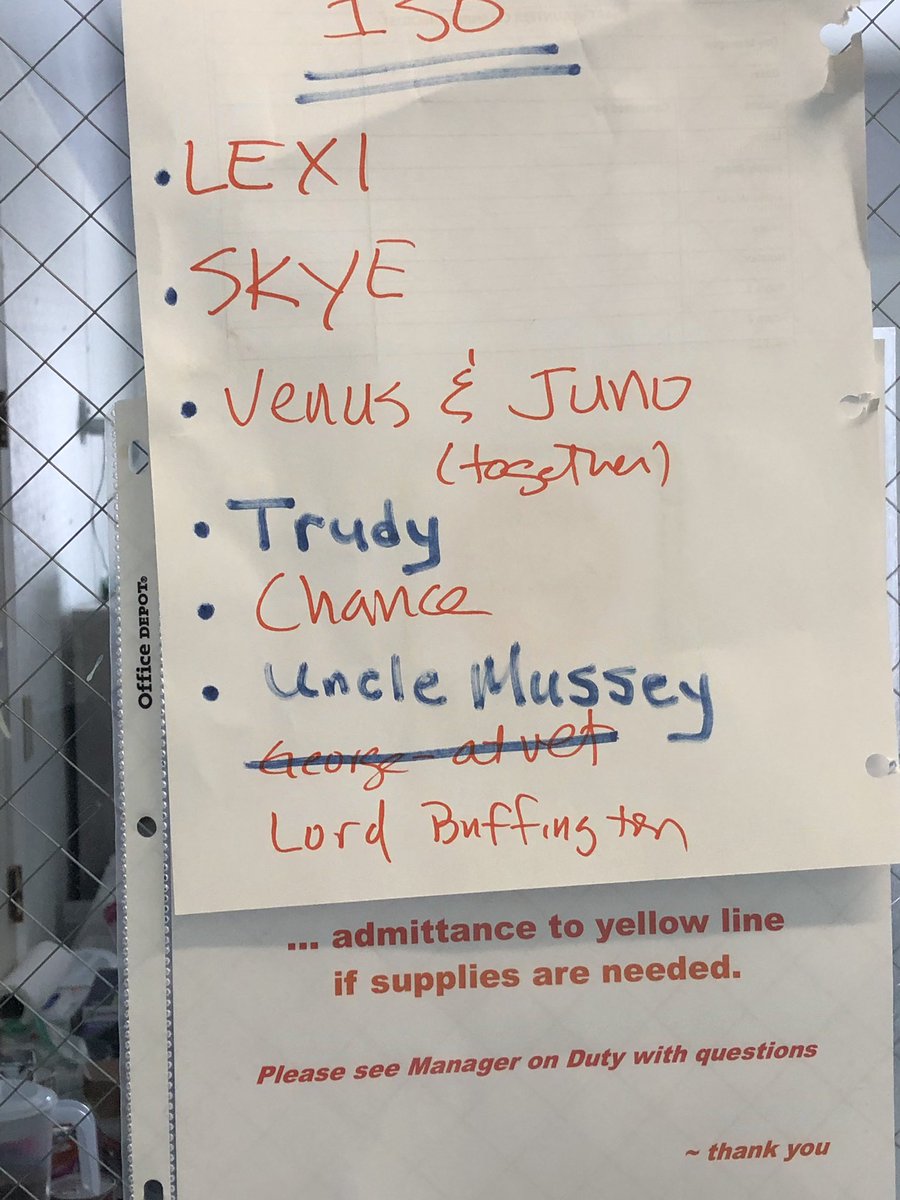 ISO
• LEXI
• SKYE
• Venus & Juno
(together)
• Trudy
• Chance
• Uncle Mussey
George - at vet
Lord Buffington
Office DEPOT®
... admittance to yellow line
if supplies are needed.
Please see Manager on Duty with questions
~ thank you